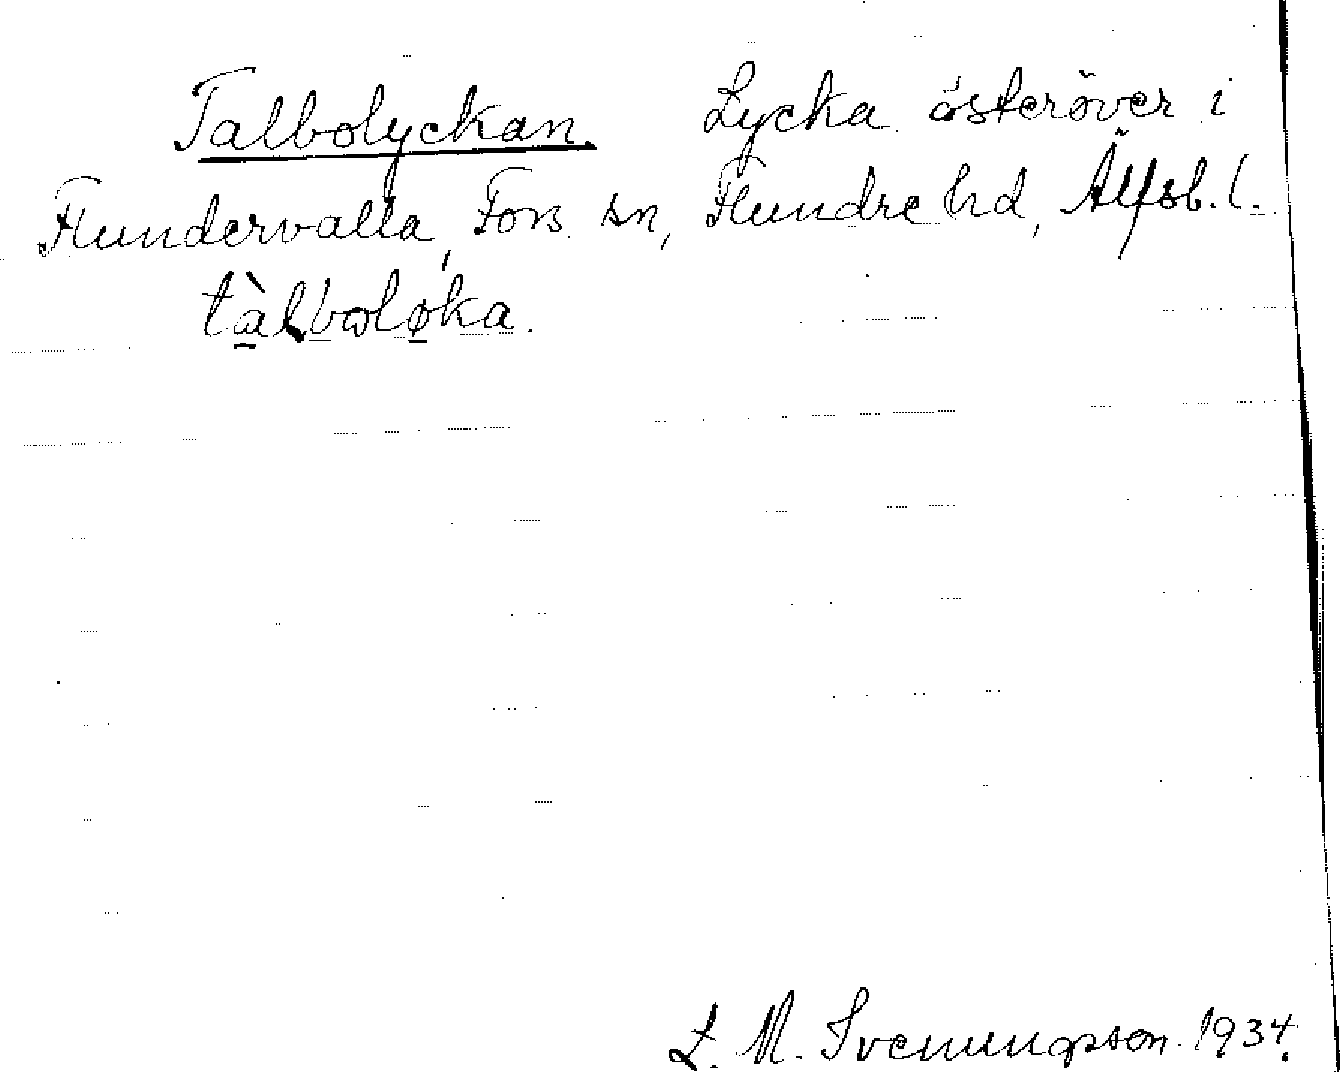 Talbolyckan. Lycka österöver i
Flundervalla, Fors sn, Flundre hd, Älfsb. l.
tàlbωløka.
L. M. Svenungsson. 1934.